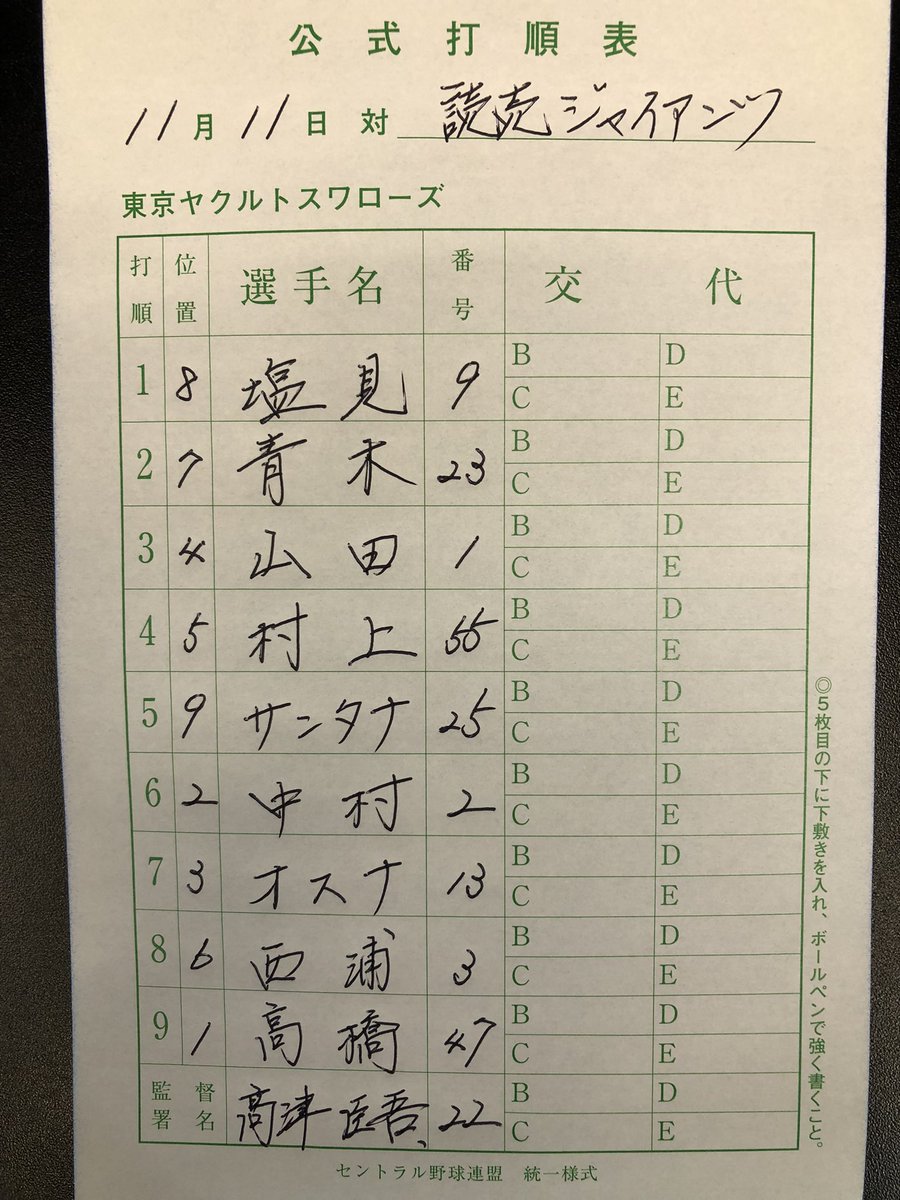 公式打順表
11月11日 対 読売ジャイアンツ
東京ヤクルトスワローズ
打順 位置 選手名 番号 交代
1 8 塩見 9 B D C E
2 7 青木 23 B D C E
3 4 山田 1 B D C E
4 5 村上 55 B D C E
5 9 サンタナ 25 B D C E
6 2 中村 2 B D C E
7 3 オスナ 13 B D C E
8 6 西浦 3 B D C E
9 1 高橋 47 B D C E
監督署名 高津臣吾 22 B D C E
◎5枚目の下に下敷きを入れ、ボールペンで強く書くこと。
セントラル野球連盟 統一様式